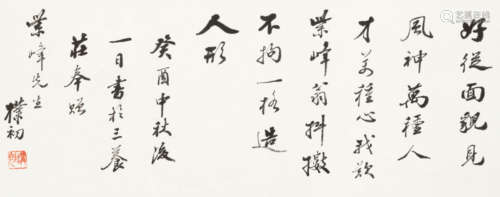 好從面貌見
風神萬種人
才萬種心我
業峰翁抖擻
不拘一格造
人形
癸酉中秋後
一日書於三養
莊奉
業峰先生
樸初